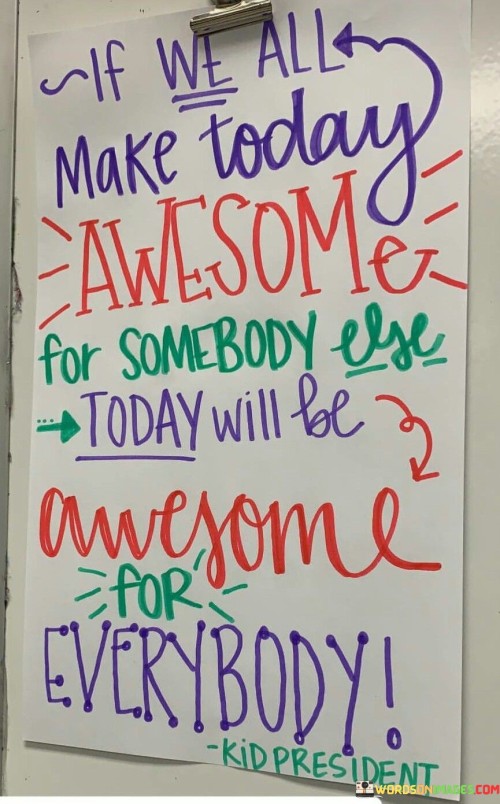 ~If WE ALL
Make today
AWESOMe
for SOMEBODY else
TODAY will be
awesome
foR
EVERYBODY!
-KiD PRESiDENT
WORDSONIMAGES.COM